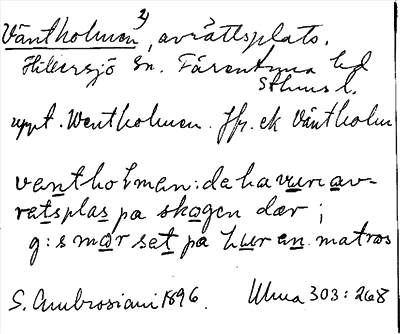 Väntholmen 2), avrättsplats.
Hillersjö sn. Färentuna hd
Sthms l.
uppt. Wentholmen. Jfr. ek Väntholm
vantholman: de ha vuri av-
ratsplas pa skogen dær;
g: s mor set pa hur en matros
S. Ambrosiani 1896. Uma 303: 268